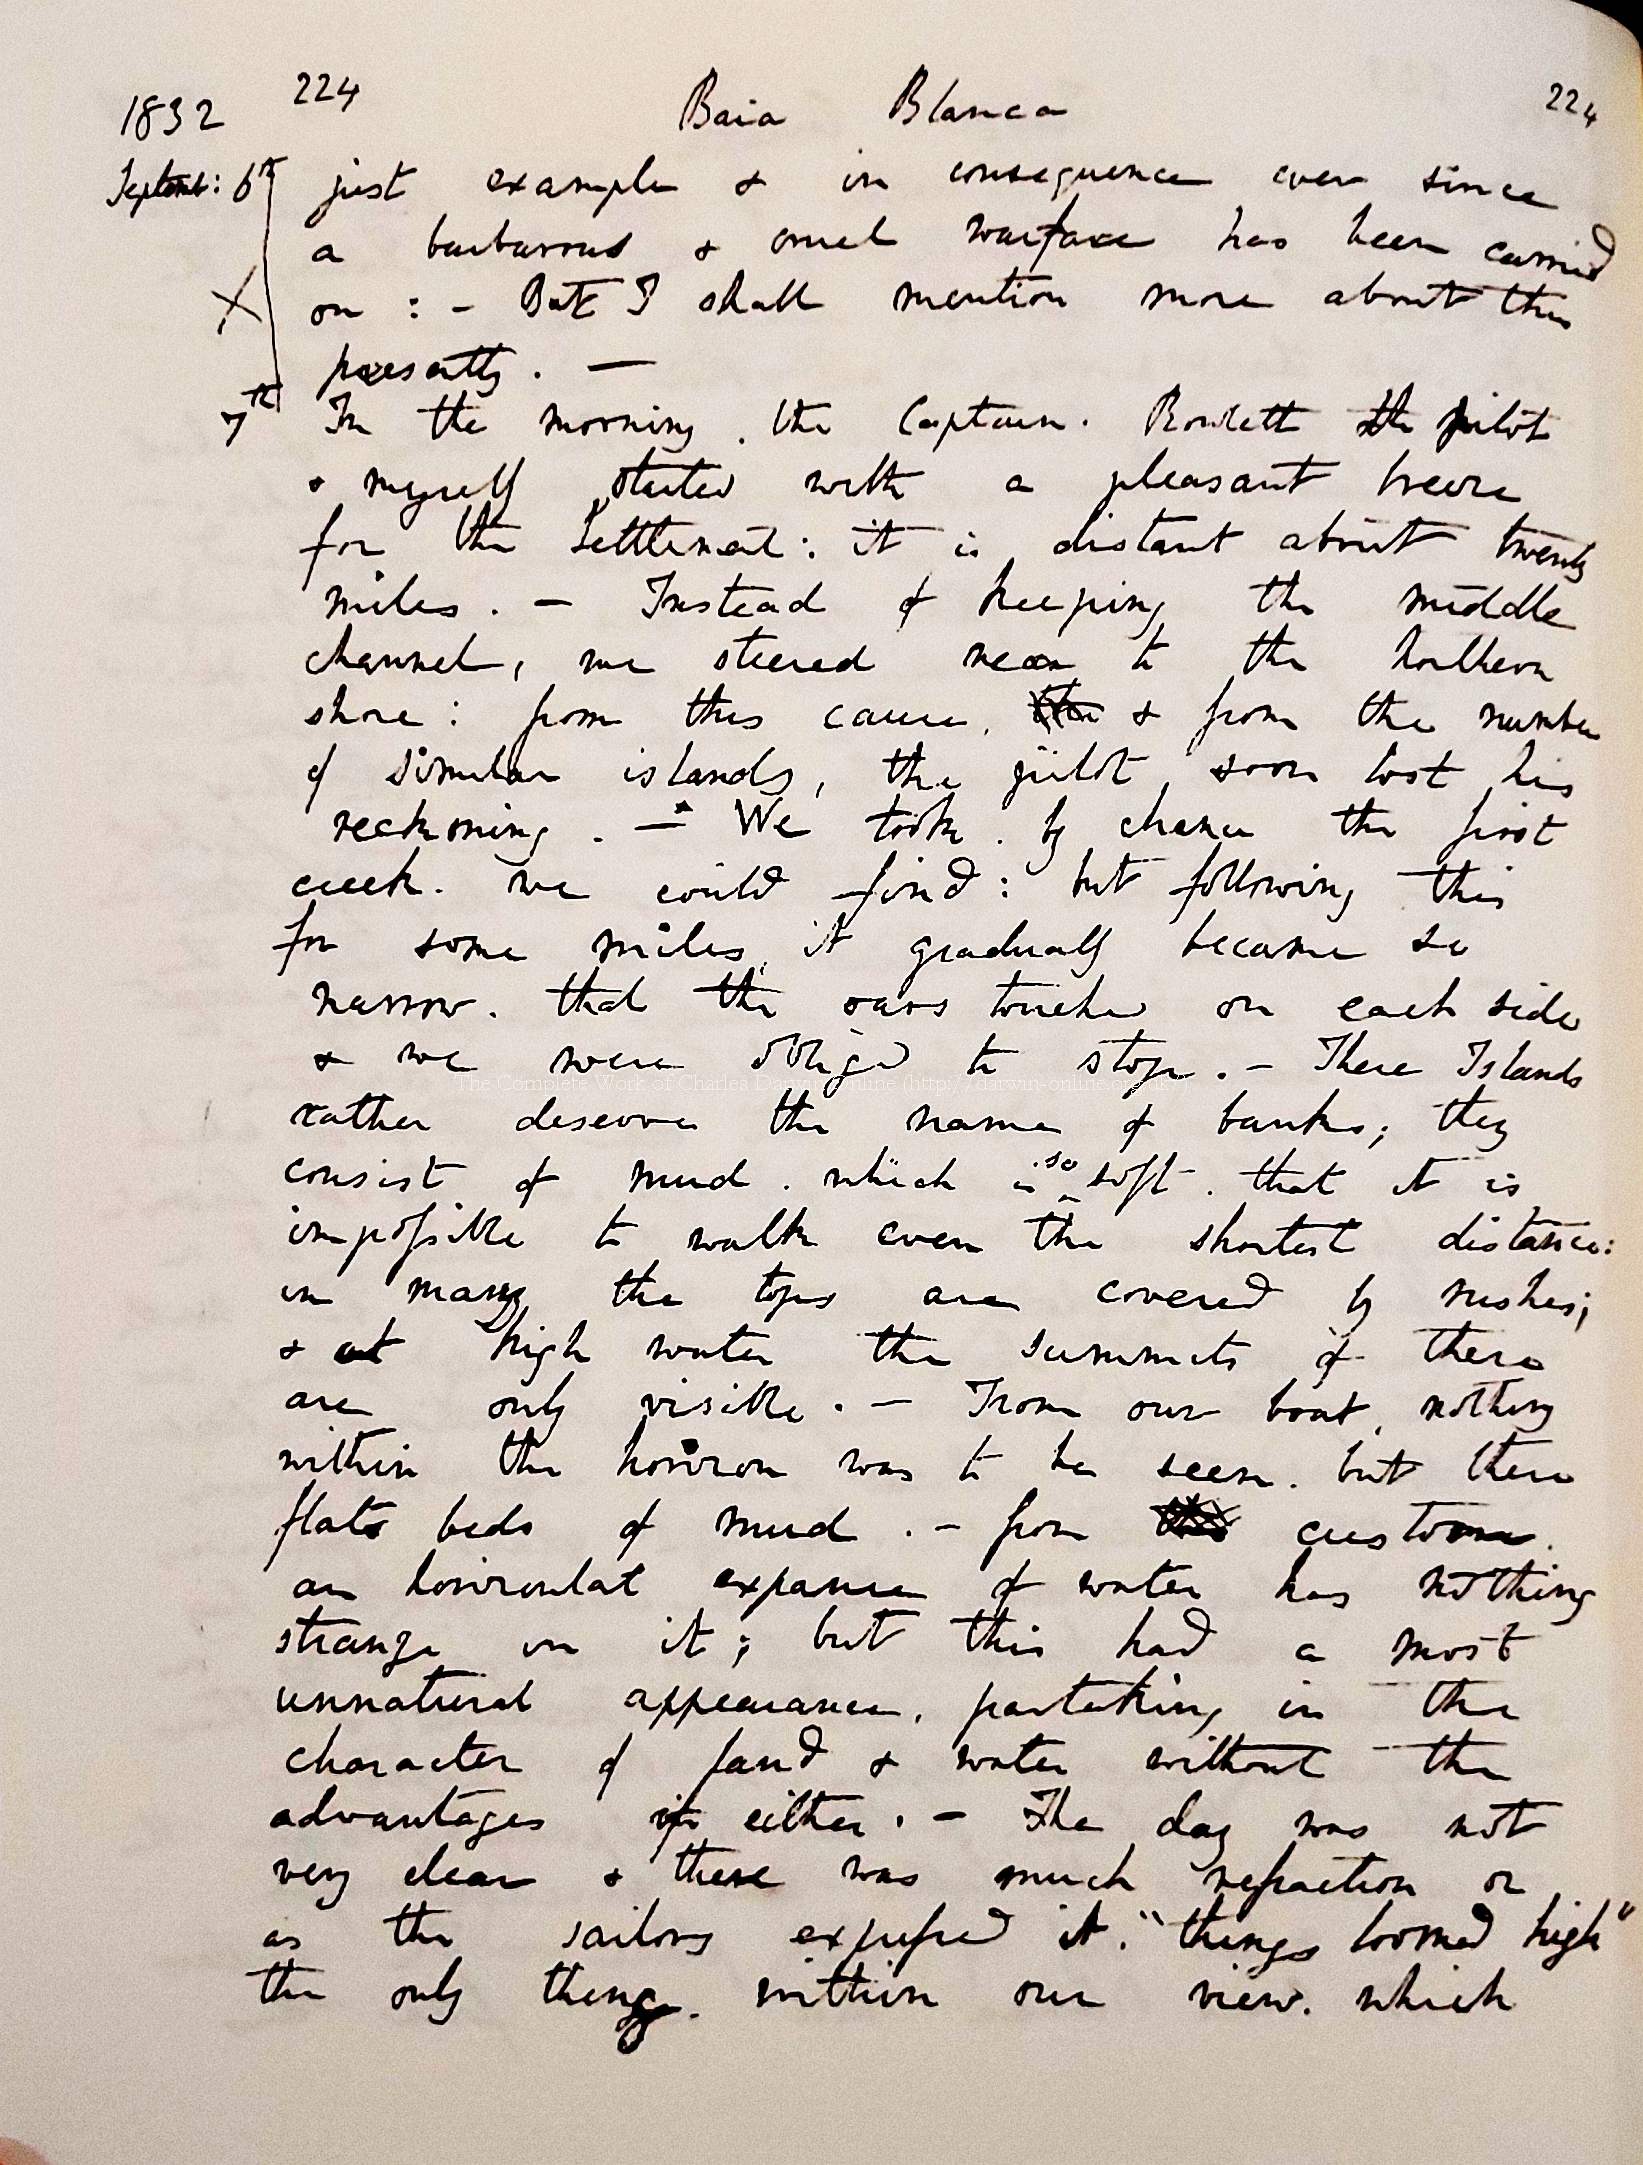 1832 224 Baia Blanca 224
Septemb: 6th just example & in consequence ever since
a barbarous & cruel warfare has been carried
X on : — But I shall mention more about this
presently. —
7th In the morning. the Captain. Rowlett the pilot
& myself started with a pleasant breeze
for the Settlement: it is distant about twenty
miles. — Instead of keeping the middle
channel, we steered near to the Northern
shore: from this cause, & from the number
of similar islands, the pilot soon lost his
reckoning. — We took. by chance the first
creek. we could find: but following this
for some miles, it gradually became so
narrow. that the oars touched on each side
& we were obliged to stop. — These Islands
The Complete Work of Charles Darwin Online (http://darwin-online.org.uk)
rather deserve the name of banks; they
consist of mud. which is so soft. that it is
impossible to walk even the shortest distance:
in many the tops are covered by rushes;
& at high water the summits of these
are only visible. — From our boat, nothing
within the horizon was to be seen. but these
flat beds of mud. — from custom.
an horizontal expanse of water has nothing
strange in it; but this had a most
unnatural appearance, partaking in the
character of land & water without the
advantages of either. — The day was not
very clear & there was much refraction or
as the sailors expressed it. "things loomed high"
the only thing. within our view. which